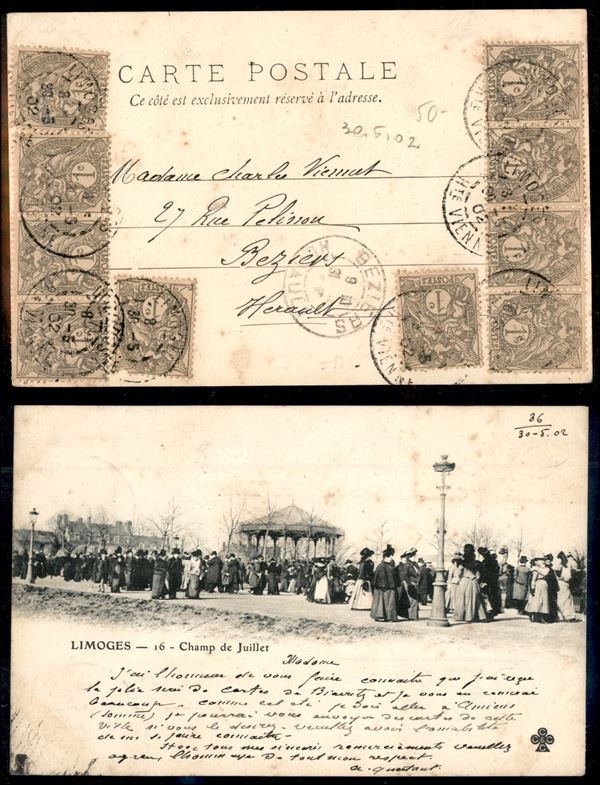 CARTE POSTALE
Ce côté est exclusivement réservé à l'adresse.
50-
30.5.02
Madame Charles Viennet
27 Rue Pelisson
Beziers
Herault
BEZIERS
HERAULT
LIMOGES
HTE VIENNE
1c
POSTES
36
30-5.02
LIMOGES — 16 - Champ de Juillet
Madame
J'ai l'honneur de vous faire connaitre que j'ai reçu
la jolie serie de cartes de Biarritz et je vous en remercie
beaucoup - comme cet été je dois aller à Amiens
(Somme) je pourrai vous envoyer des cartes de cette
ville si vous le desirez veuillez avoir l'amabilité
de me le faire connaitre -
tous mes sincères remerciements veuillez
agréer l'hommage de tout mon respect.